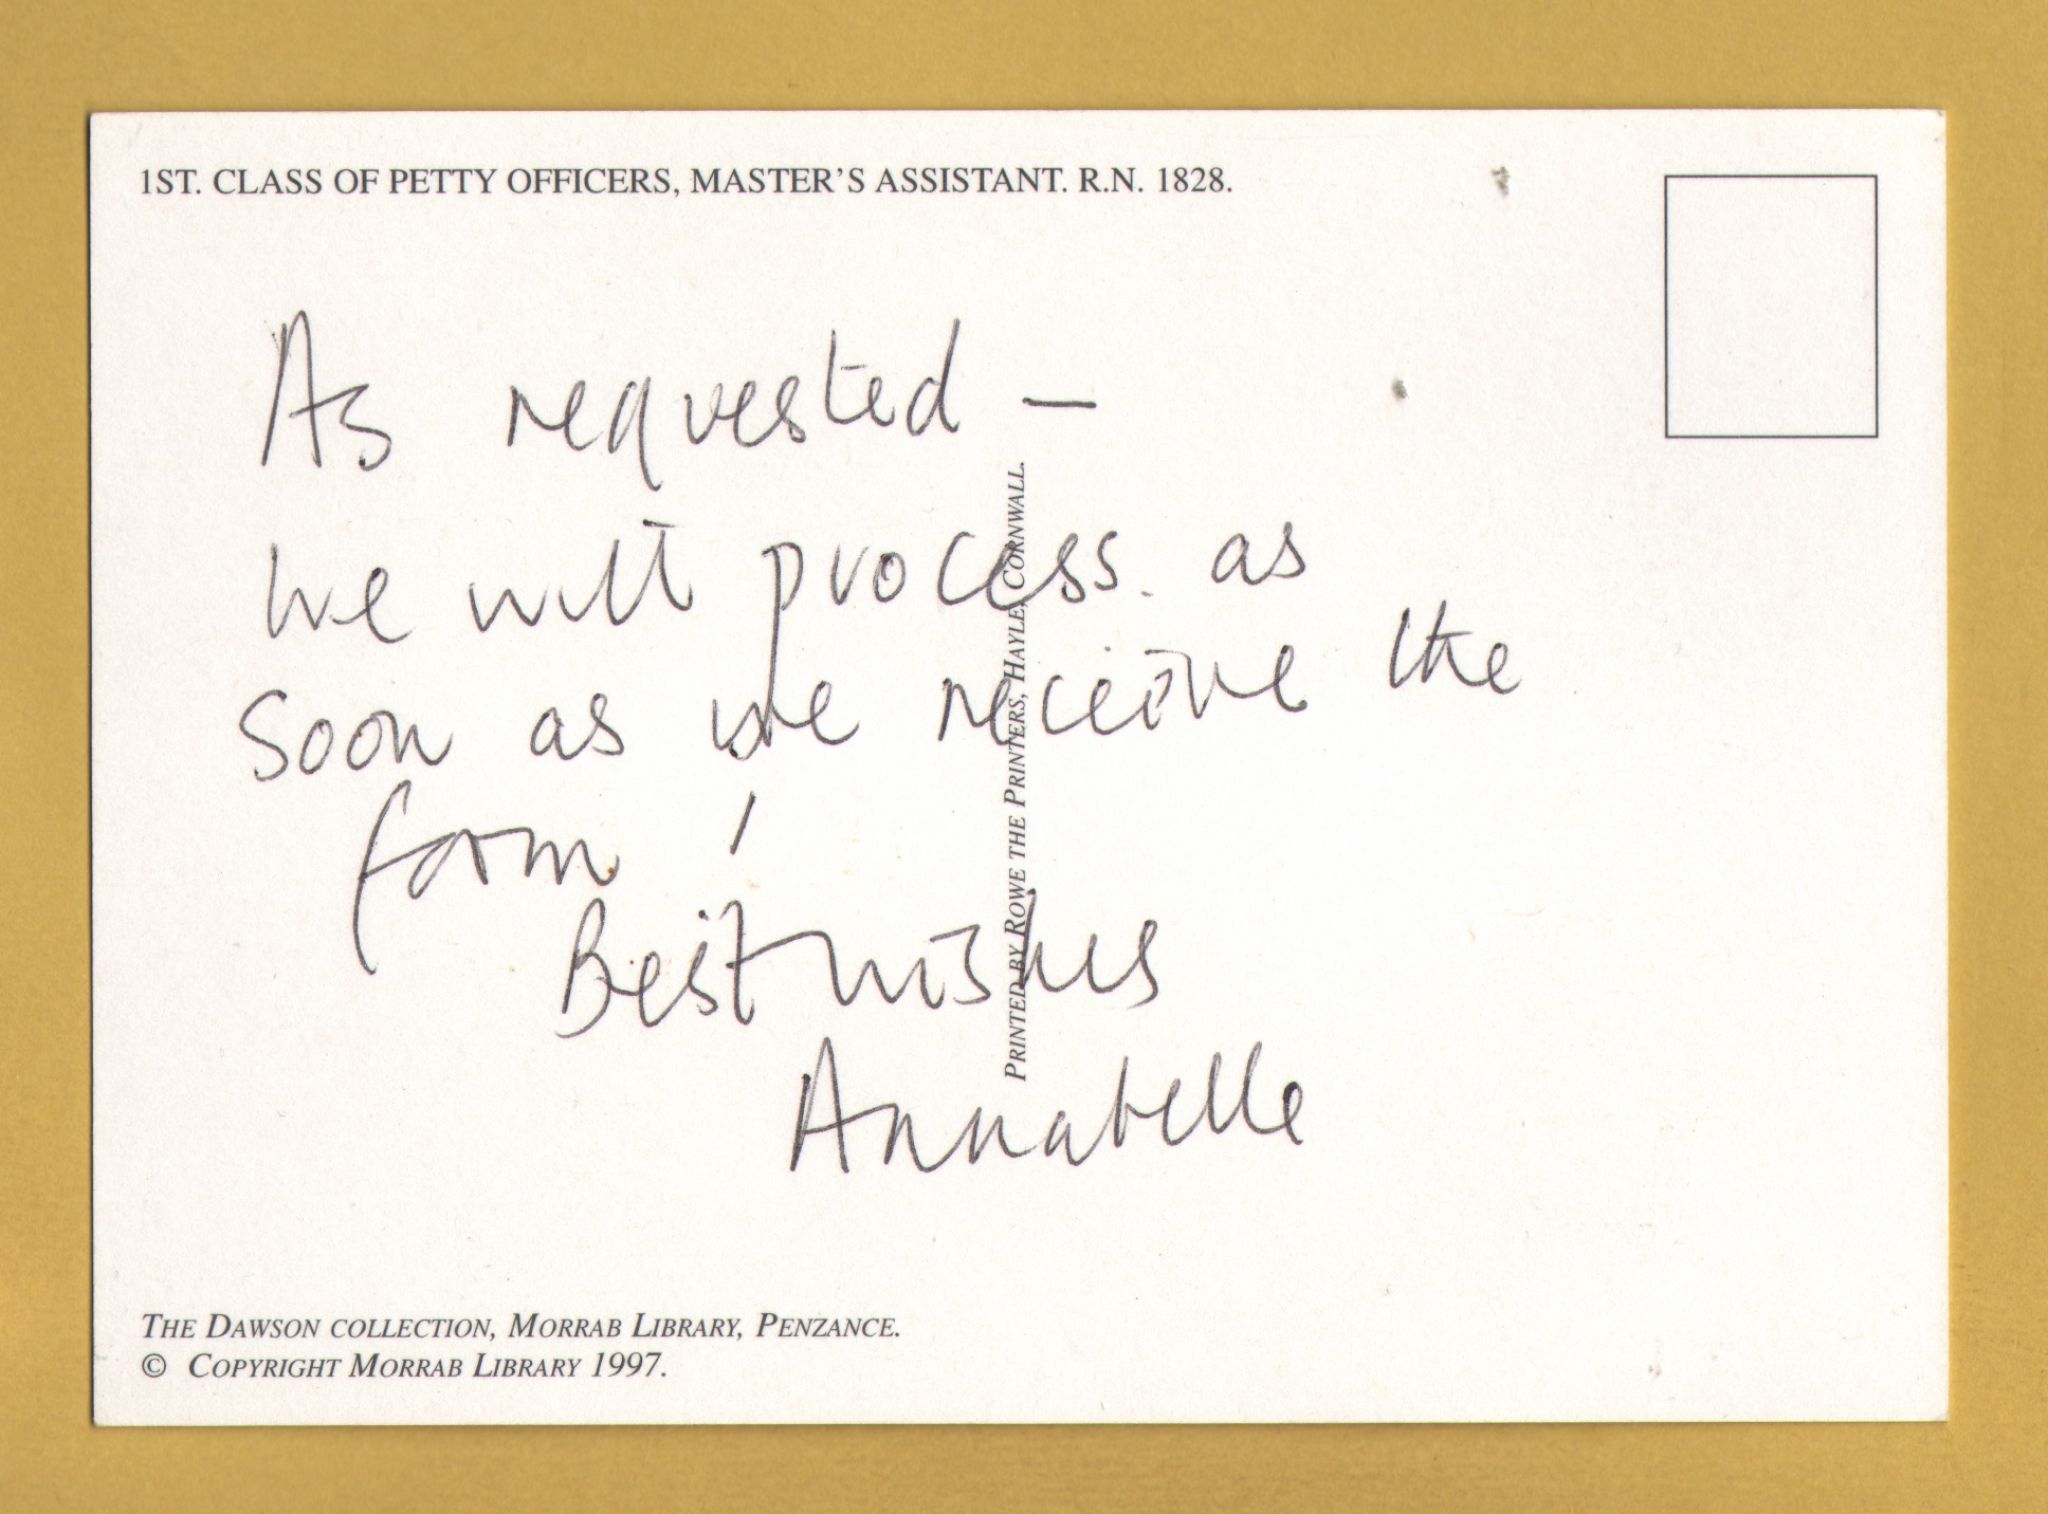 1ST. CLASS OF PETTY OFFICERS, MASTER'S ASSISTANT. R.N. 1828.
As requested —
We will process as
soon as we receive the
form!
Best wishes
Annabelle
PRINTED BY ROWE THE PRINTERS, HAYLE, CORNWALL.
THE DAWSON COLLECTION, MORRAB LIBRARY, PENZANCE.
© COPYRIGHT MORRAB LIBRARY 1997.